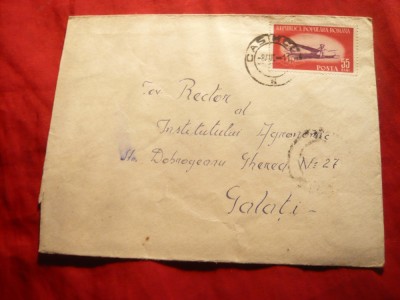 REPUBLICA POPULARA ROMANA
POSTA 55
CASIMCEA
Tov Rector
al
Institutului Agronomic
Str. Dobrogeanu Gherea Nr 27
Galați -